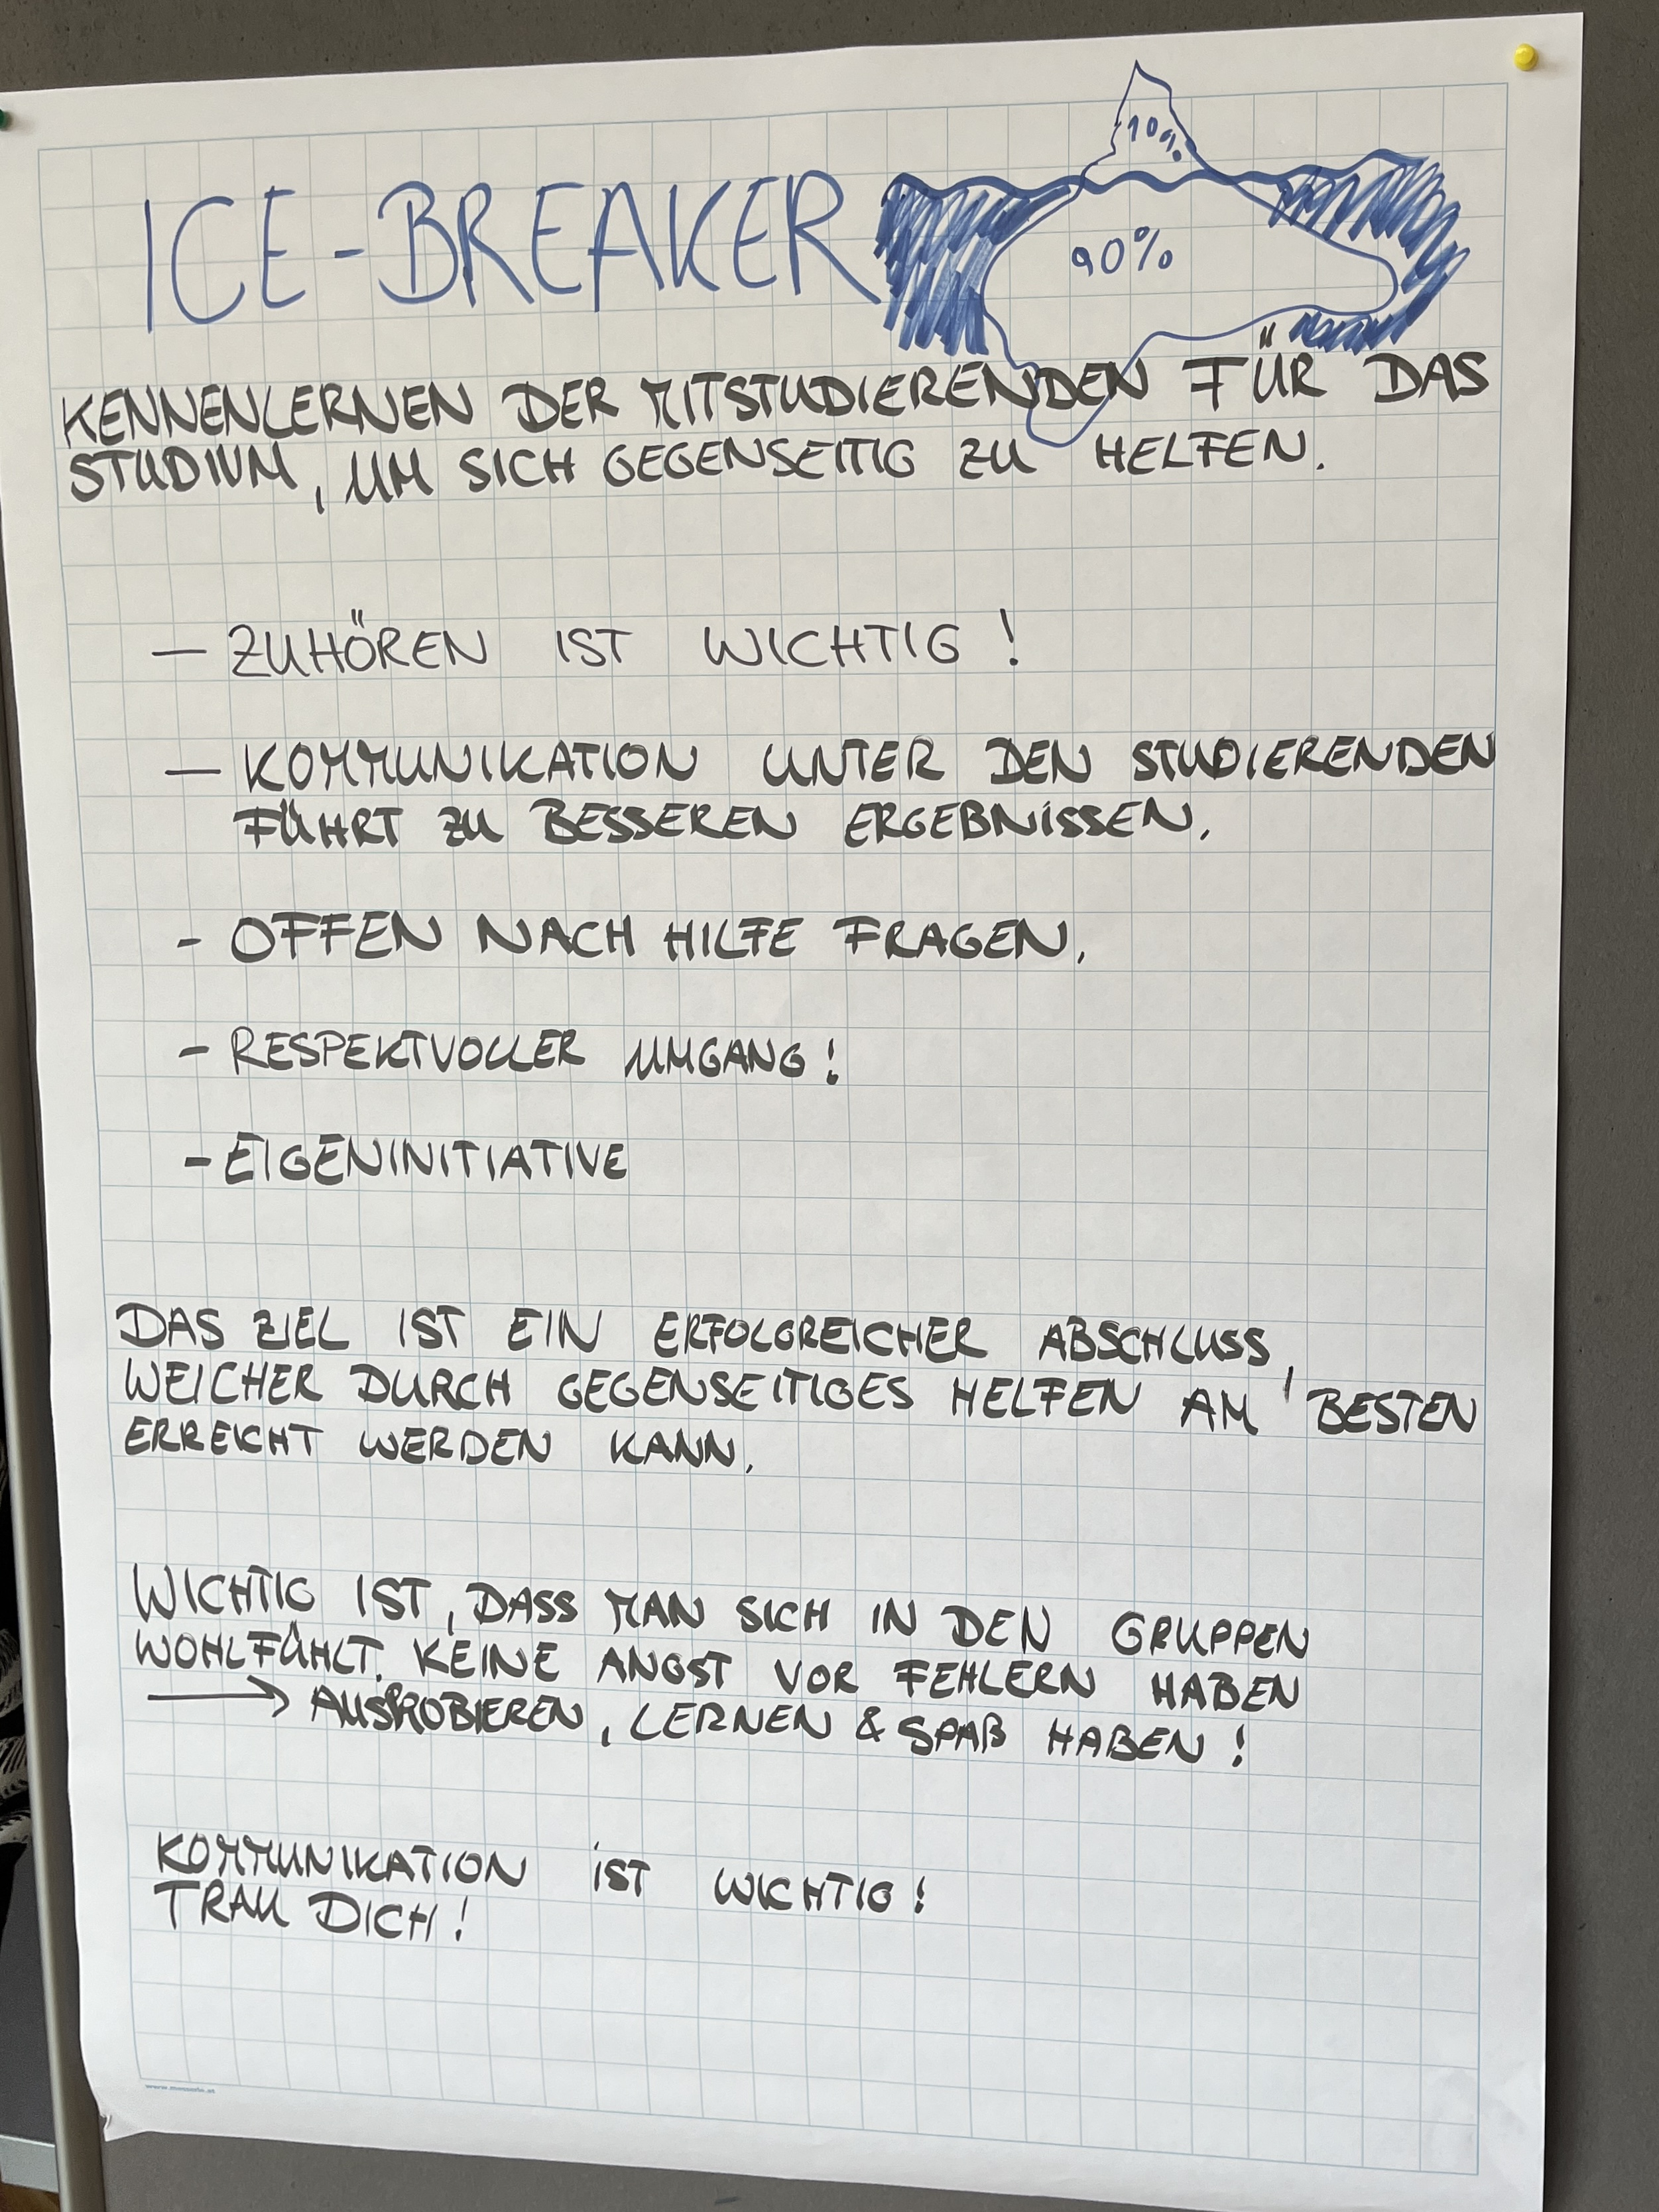 ICE-BREAKER
10%
90%
KENNENLERNEN DER MITSTUDIERENDEN FÜR DAS
STUDIUM, UM SICH GEGENSEITIG ZU HELFEN.
— ZUHÖREN IST WICHTIG!
— KOMMUNIKATION UNTER DEN STUDIERENDEN
FÜHRT ZU BESSEREN ERGEBNISSEN.
- OFFEN NACH HILFE FRAGEN.
- RESPEKTVOLLER UMGANG!
- EIGENINITIATIVE
DAS ZIEL IST EIN ERFOLGREICHER ABSCHLUSS,
WELCHER DURCH GEGENSEITIGES HELFEN AM BESTEN
ERREICHT WERDEN KANN.
WICHTIG IST, DASS MAN SICH IN DEN GRUPPEN
WOHLFÜHLT. KEINE ANGST VOR FEHLERN HABEN
→ AUSPROBIEREN, LERNEN & SPAß HABEN!
KOMMUNIKATION IST WICHTIG!
TRAU DICH!